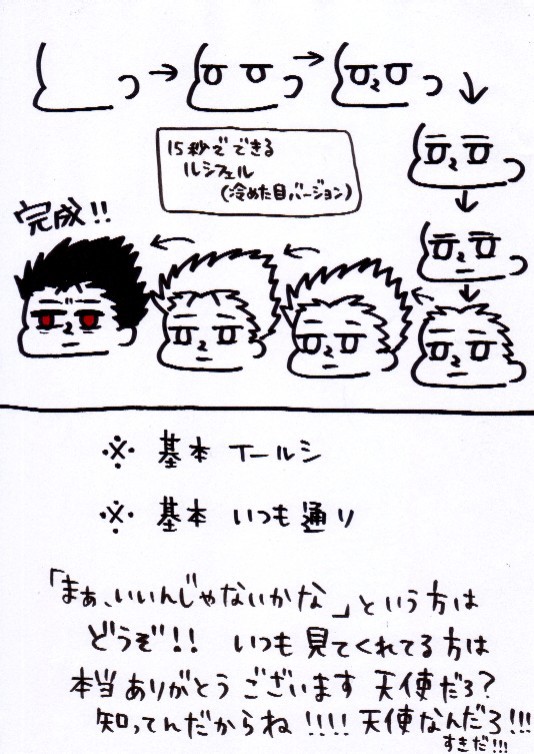 15秒でできる
ルシフェル
(冷めた目バージョン)
完成!!
※ 基本 イールシ
※ 基本 いつも通り
「まぁ、いいんじゃないかな」という方は
どうぞ!! いつも見てくれてる方は
本当ありがとうございます 天使だろ?
知ってんだからね!!!! 天使なんだろ!!!
すきだ!!!